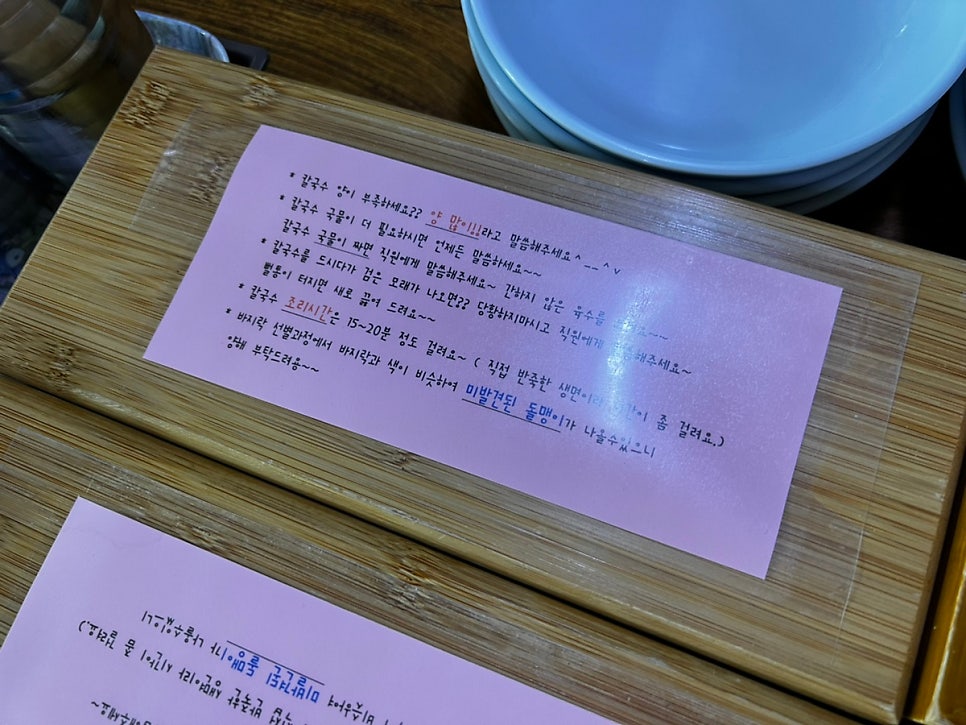 * 칼국수 양이 부족하세요?? 양 많이!!라고 말씀해주세요^__^v
* 칼국수 국물이 더 필요하시면 언제든 말씀하세요~~
칼국수 국물이 짜면 직원에게 말씀해주세요~ 간하지 않은 육수를
* 칼국수를 드시다가 검은 모래가 나오면?? 당황하지마시고 직원에게 말씀해주세요~
뻘통이 터지면 새로 끓여 드려요~~
* 칼국수 조리시간은 15~20분 정도 걸려요~ ( 직접 반죽한 생면이라 시간이 좀 걸려요.)
* 바지락 선별과정에서 바지락과 색이 비슷하여 미발견된 돌맹이가 나올수있으니
양해 부탁드려용~~